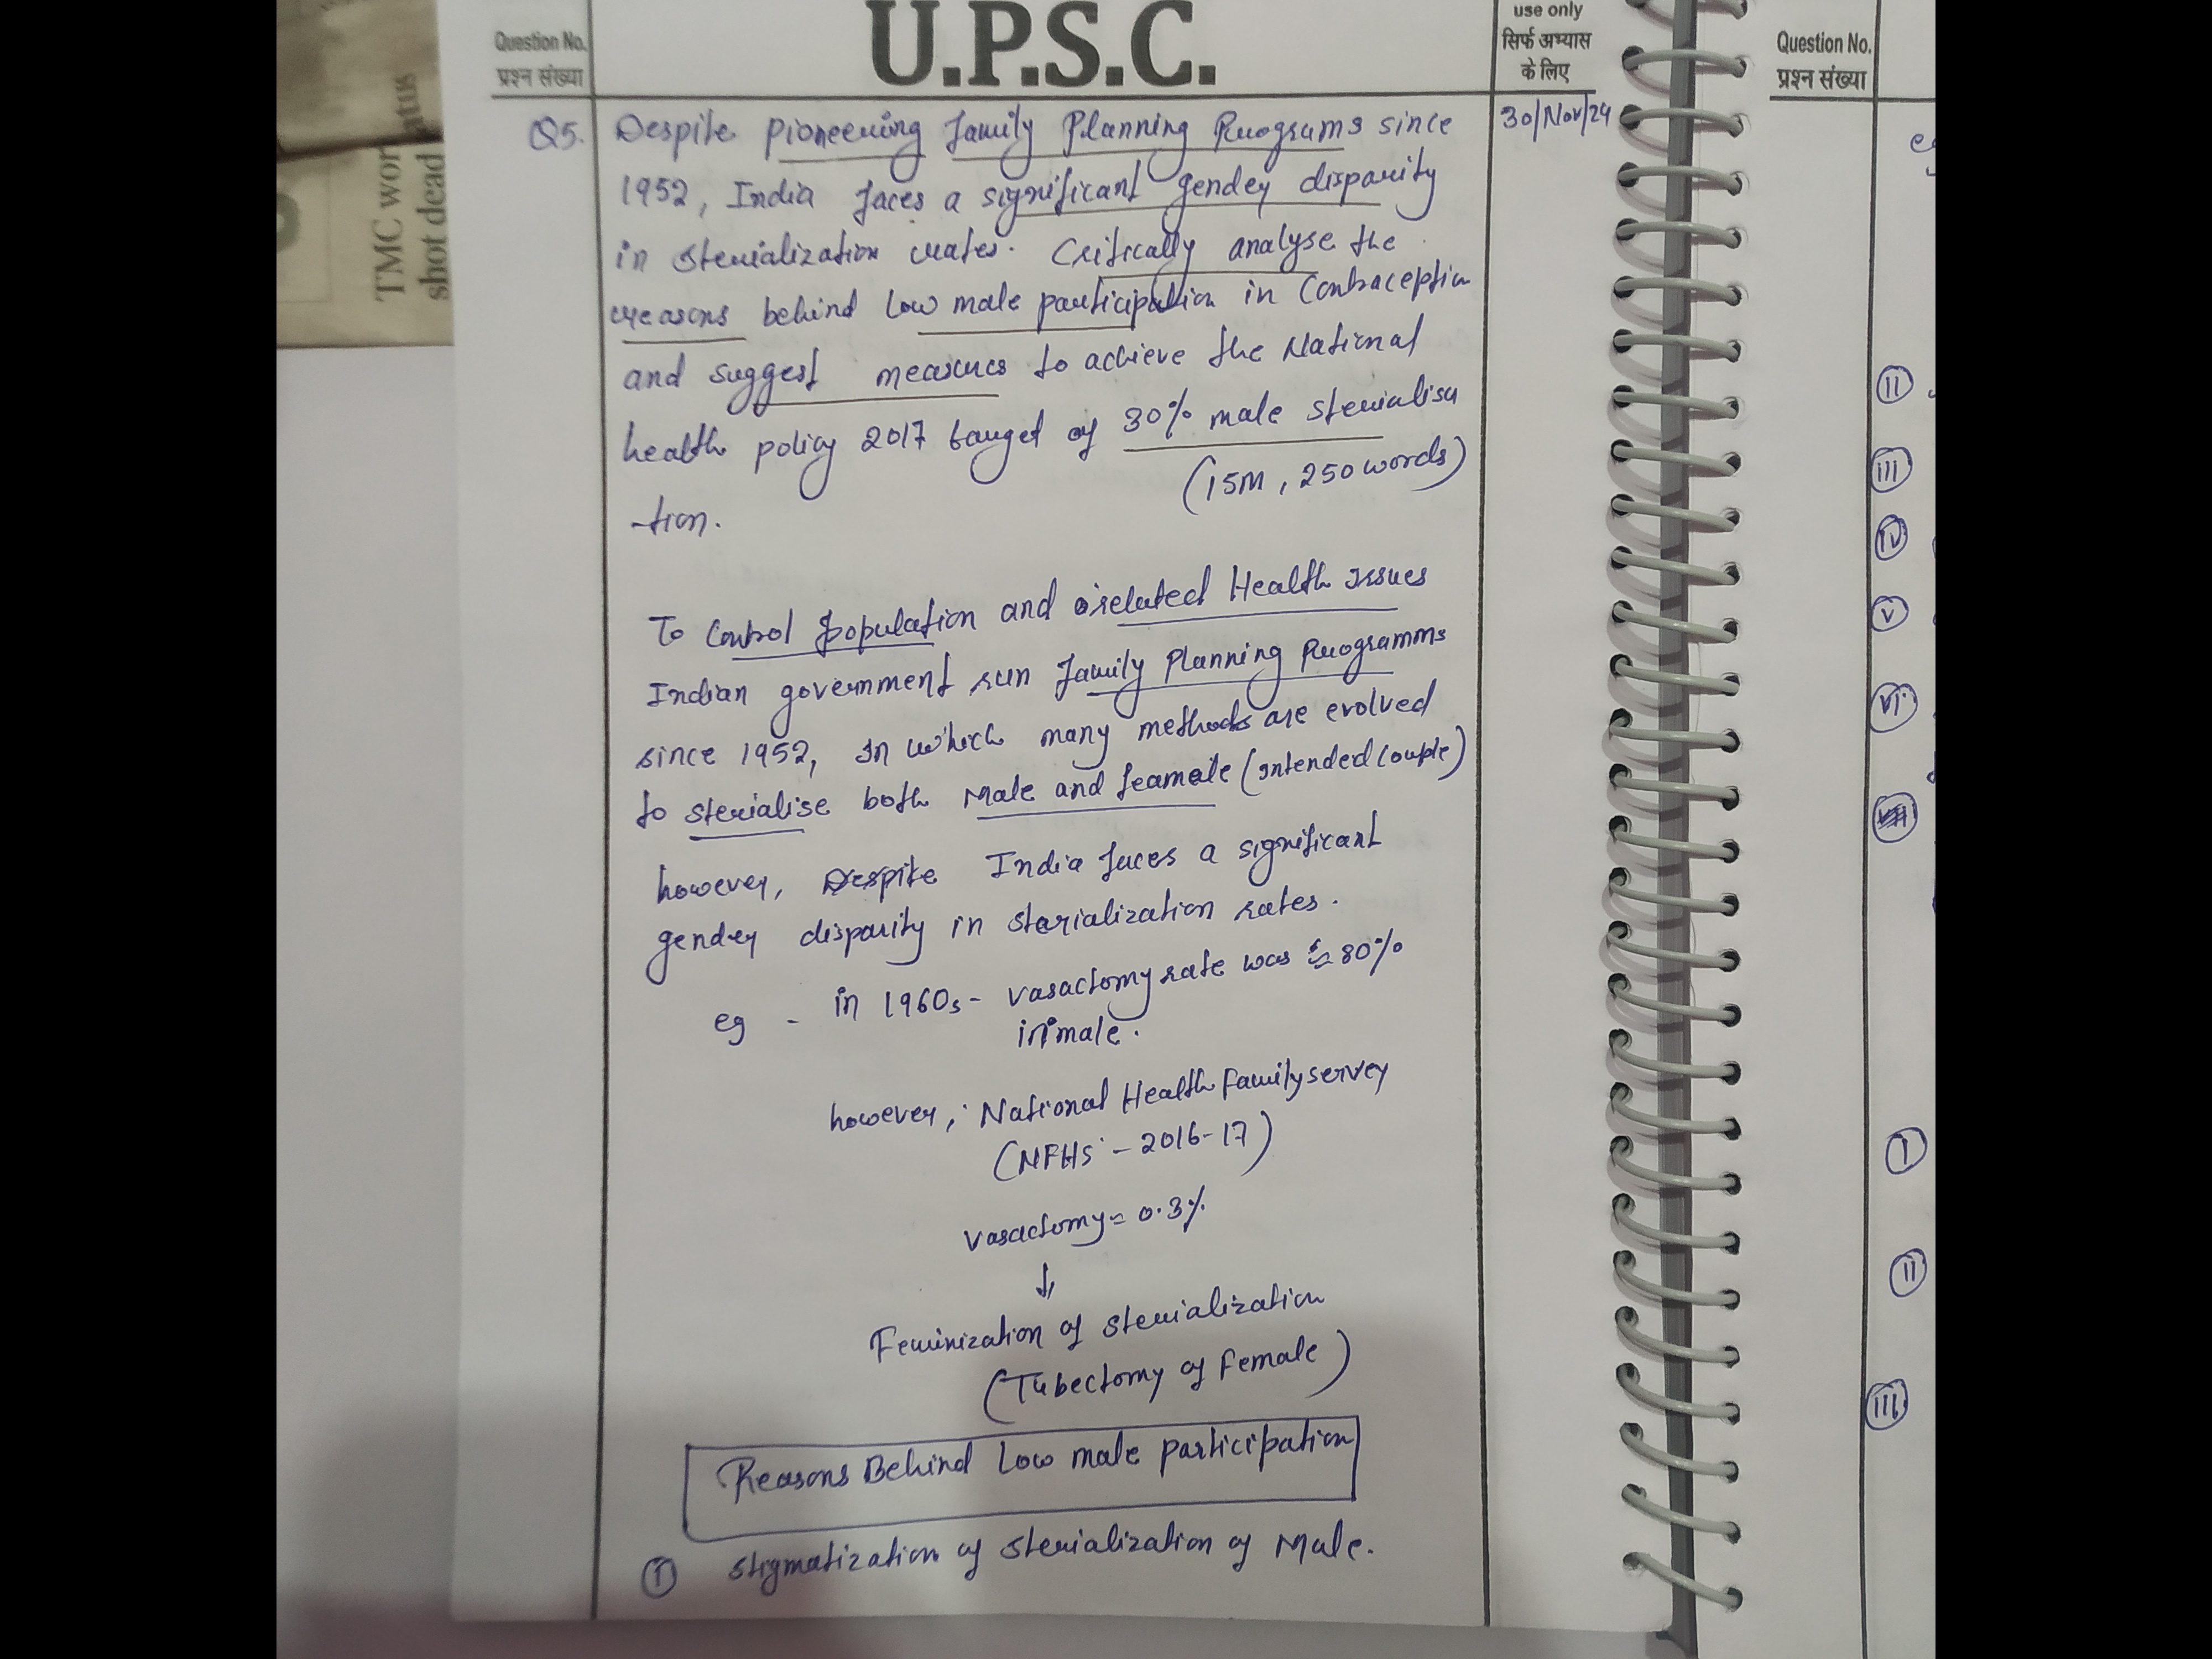 TMC wor
shot dead
atus
Question No.
प्रश्न संख्या
U.P.S.C.
use only
सिर्फ अभ्यास
के लिए
Question No.
प्रश्न संख्या
30/Nov/24
Q5. Despite pioneering family Planning Programs since
1952, India faces a significant gender disparity
in sterialization rates. Critically analyse the
reasons behind low male participation in Contraception
and suggest measures to achieve the National
health policy 2017 target of 30% male sterialisa
(15M, 250 words)
-tion.
To Control population and related Health issues
Indian government run family Planning Programms
since 1952, in which many methods are evolved
to sterialise both Male and feamale (intended couple)
however, Despite India faces a significant
gender disparity in starialization rates.
eg - in 1960s - vasactomy rate was ≈ 80%
in male.
however, National Health Family servey
(NFHS - 2016-17)
vasactomy = 0.3%
↓
Feminization of sterialization
(Tubectomy of Female)
Reasons Behind Low male participation
I stigmatization of sterialization of Male.
II
III
IV
V
VI
I
II
III